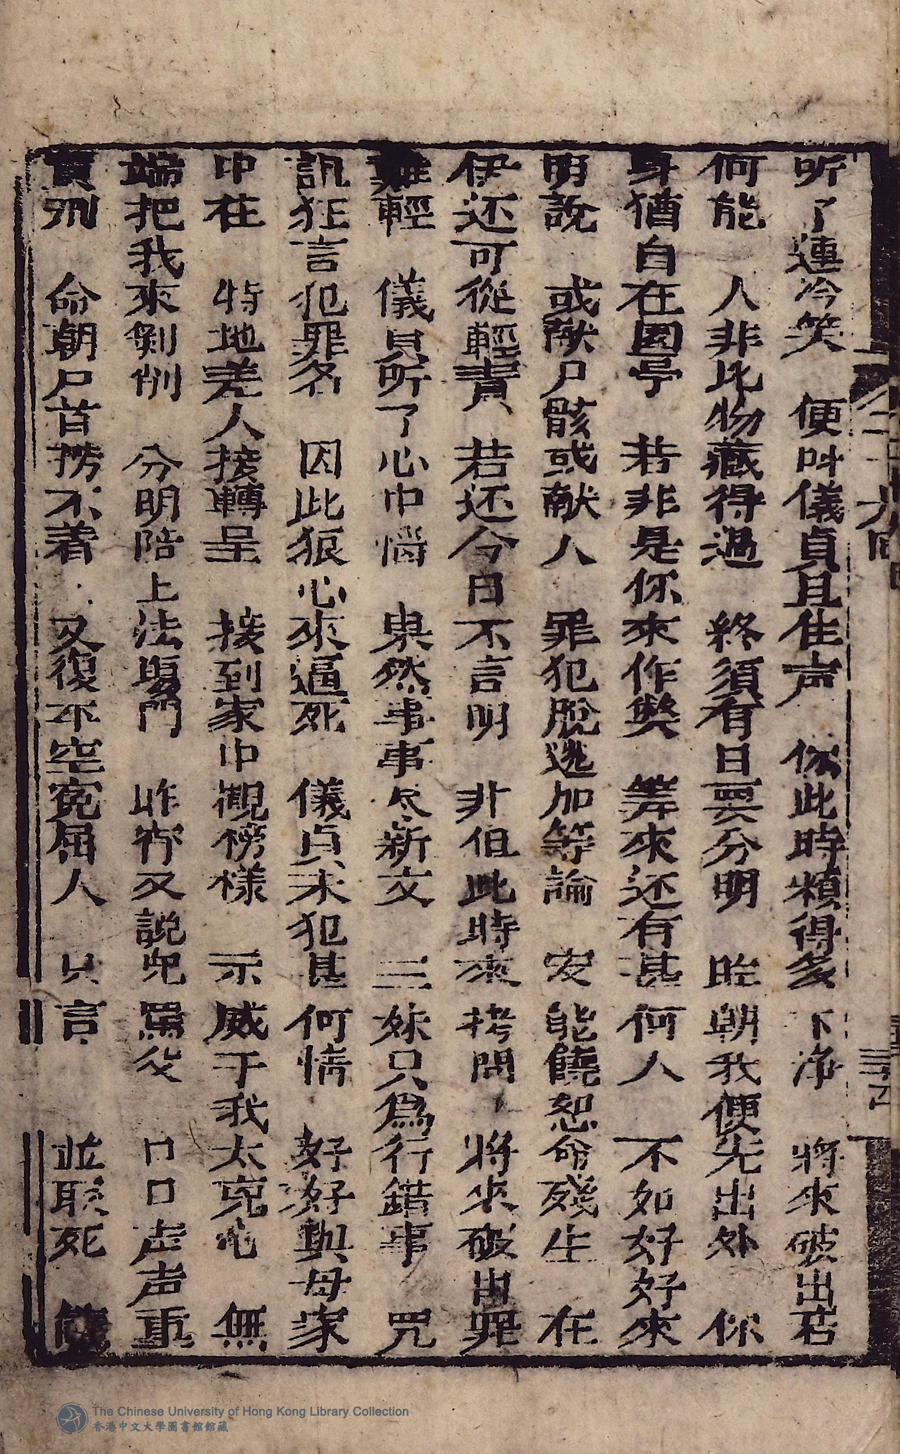 听了連冷笑　便叫儀貞且住声　你此時賴得多下净　將來破出若
何能　人非比物藏得過　終須有日要分明　昨朝我便先出外　你
身猶自在園亭　若非是你來作獘　筭來还有甚何人　不如好好來
明說　或献尸骸或献人　罪犯脫逃加等論　安能饒恕命殘生　在
伊还可從輕責　若还今日不言明　非但此時來拷問　將來破出罪
難輕　儀貞听了心中惱　果然事事尽新文　三妹只為行錯事　咒
訊狂言犯罪名　因此狠心來逼死　儀貞未犯甚何情　好好與母家
中在　特地差人接轉呈　接到家中觀榜樣　示威于我太克心　無
端把我來剝削　分明陪上法塲門　昨宵又說　口口声声重
命朝尸首撈不着　又復不空寃屈人　只言　並聯死
二十九回
The Chinese University of Hong Kong Library Collection
香港中文大學圖書館館藏